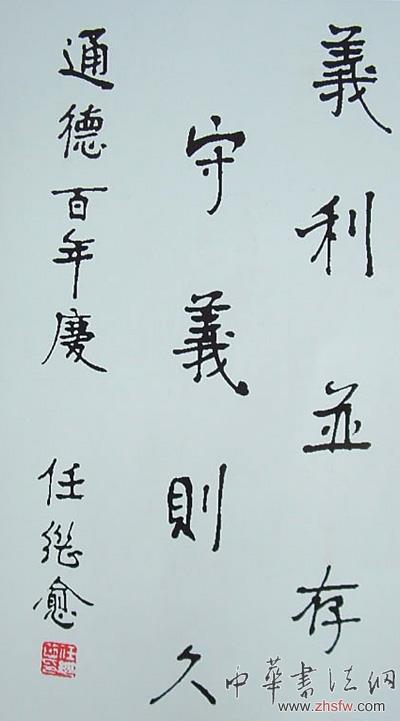 義利並存
守義則久
通德百年慶
任繼愈
中華書法網
www.zhsfw.com